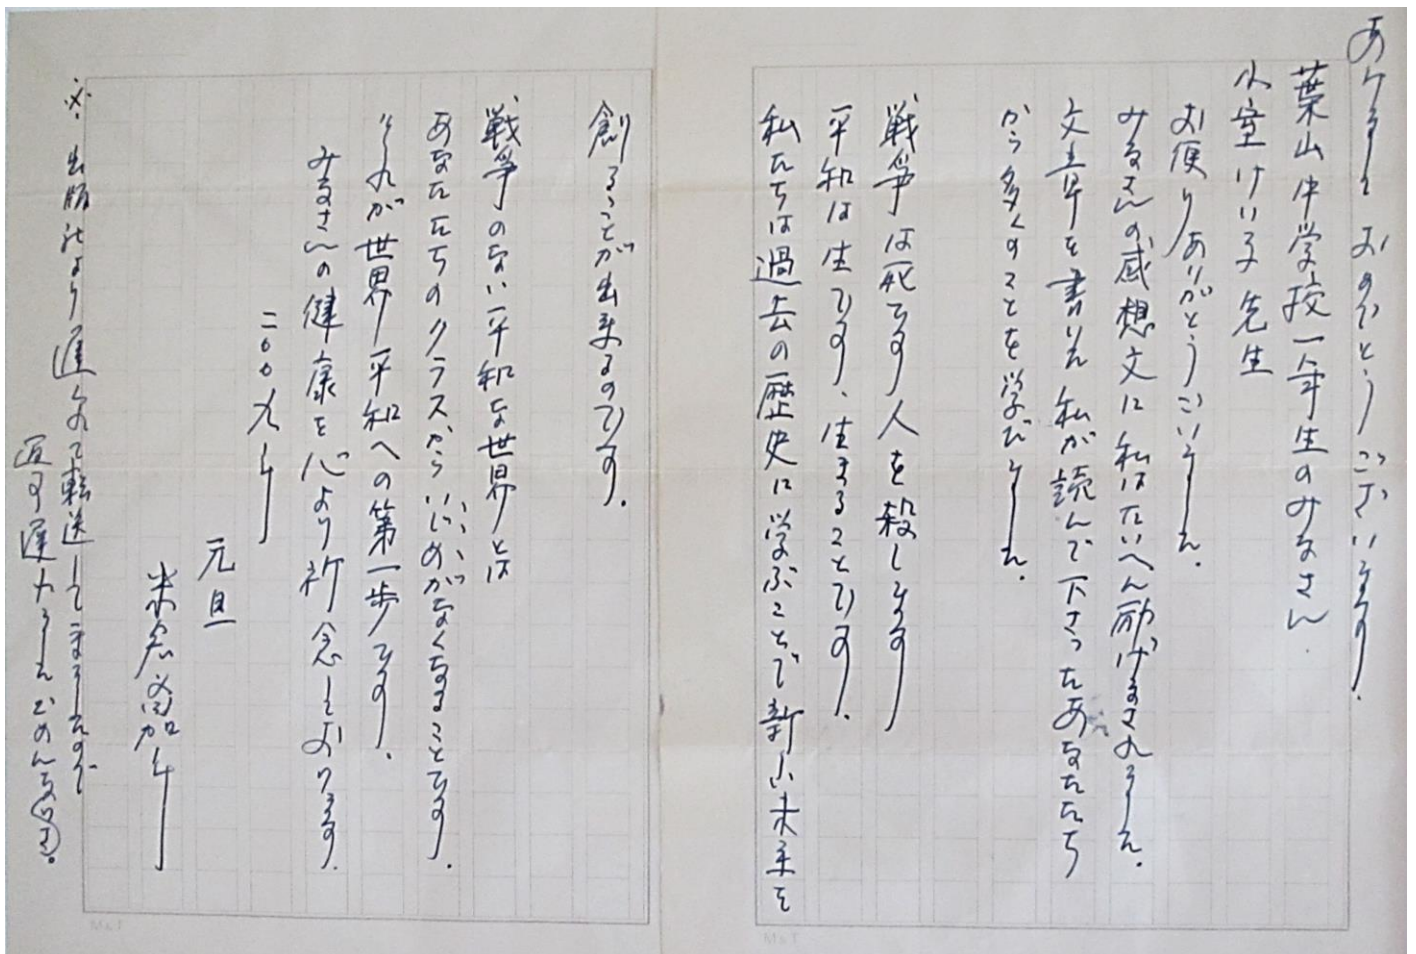 あけましておめでとうございます。
葉山中学校一年生のみなさん
小室けい子先生
お便りありがとうございました。
みなさんの感想文に私はたいへん励げまされました。
文章を書いた私が読んで下さったあなたたち
から多くのことを学びました。
戦争は死です人を殺します
平和は生です、生きることです。
私たちは過去の歴史に学ぶことで新しい未来を
創ることが出来るのです。
戦争のない平和な世界とは
あなたたちのクラスからいじめがなくなることです。
それが世界平和への第一歩です。
みなさんの健康を心より祈念しております。
二〇〇九年
元旦
米倉斉加年
※.出版社より遅れて転送してきましたので
返事遅れましたごめんなさい。
MCT
MCT